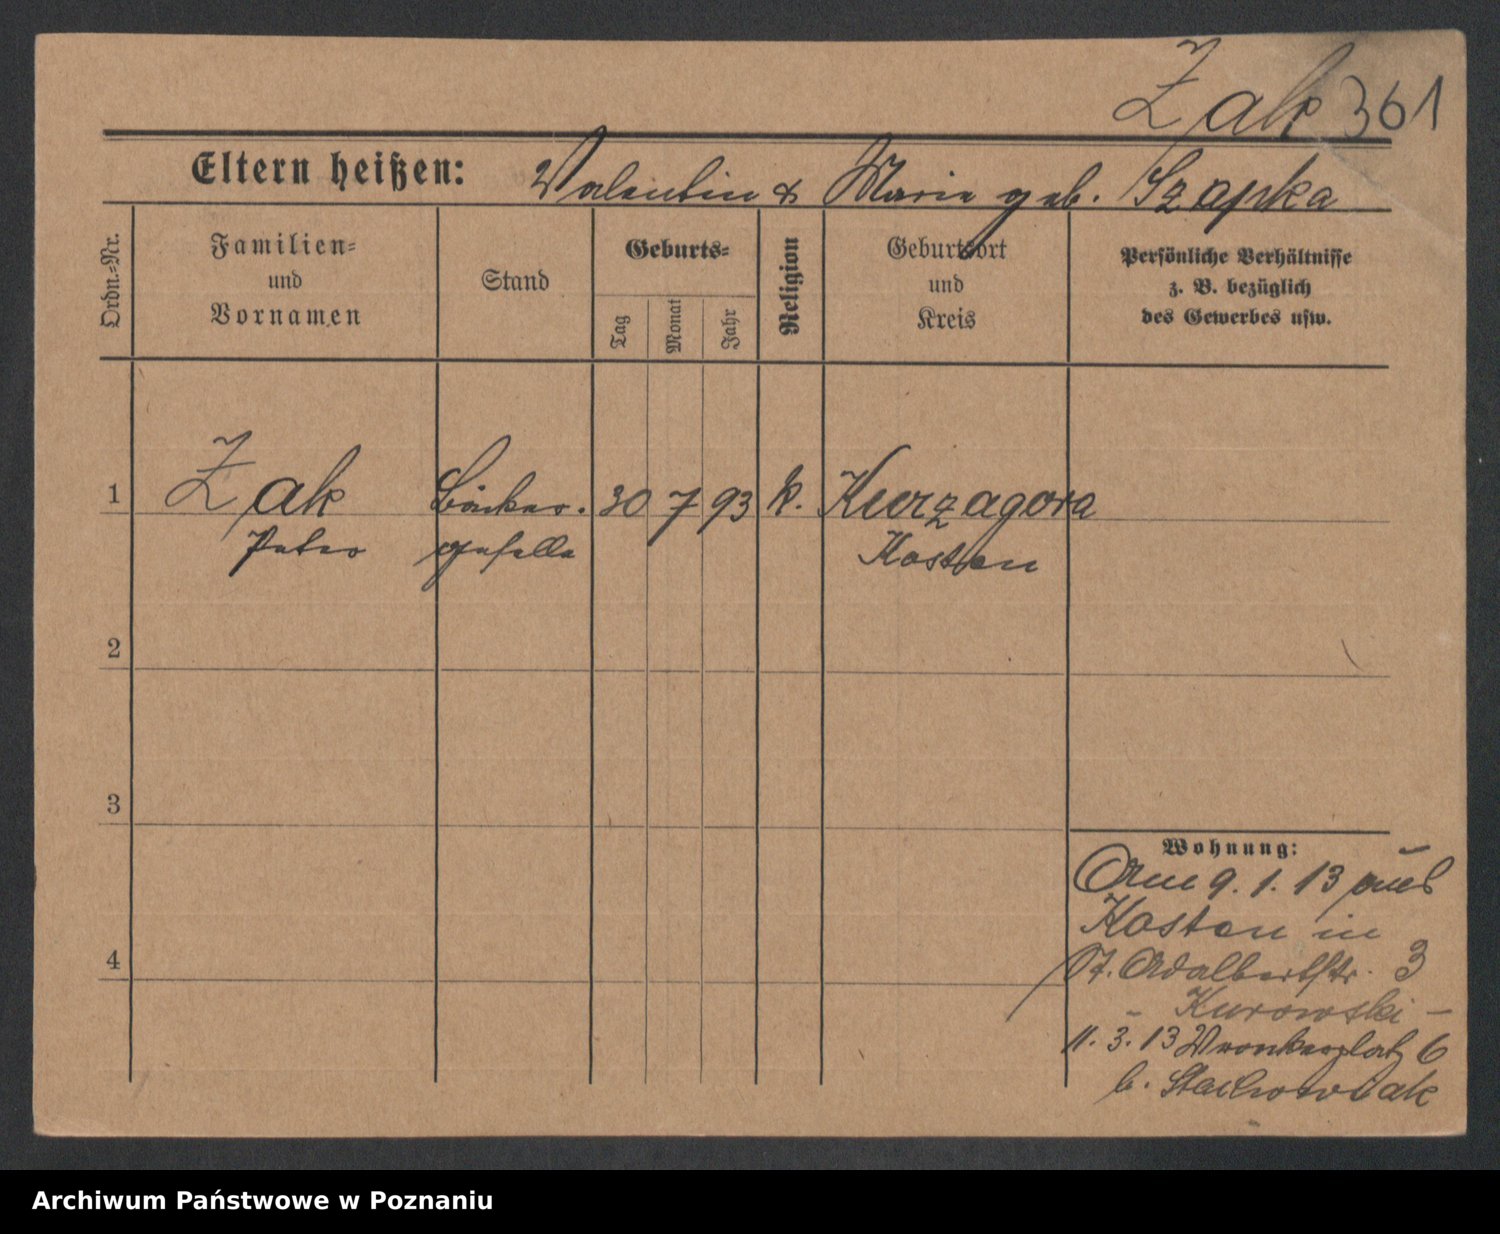 Zak 361
Eltern heißen: Valentin & Marie geb. Szapka
Ordn.-Nr.
Familien-
und
Vornamen
Stand
Geburts-
Tag
Monat
Jahr
Religion
Geburtsort
und
Kreis
Persönliche Verhältnisse
z. B. bezüglich
des Gewerbes usw.
1 Zak Bäcker- 30 7 93 k. Kurzagora
Peter geselle Kosten
2
3
4
Wohnung:
Am 9. 1. 13 aus
Kosten in
St. Adalbertstr. 3
- Kurowski -
11. 3. 13 Wronkerplatz 6
b. Stachowiak
Archiwum Państwowe w Poznaniu